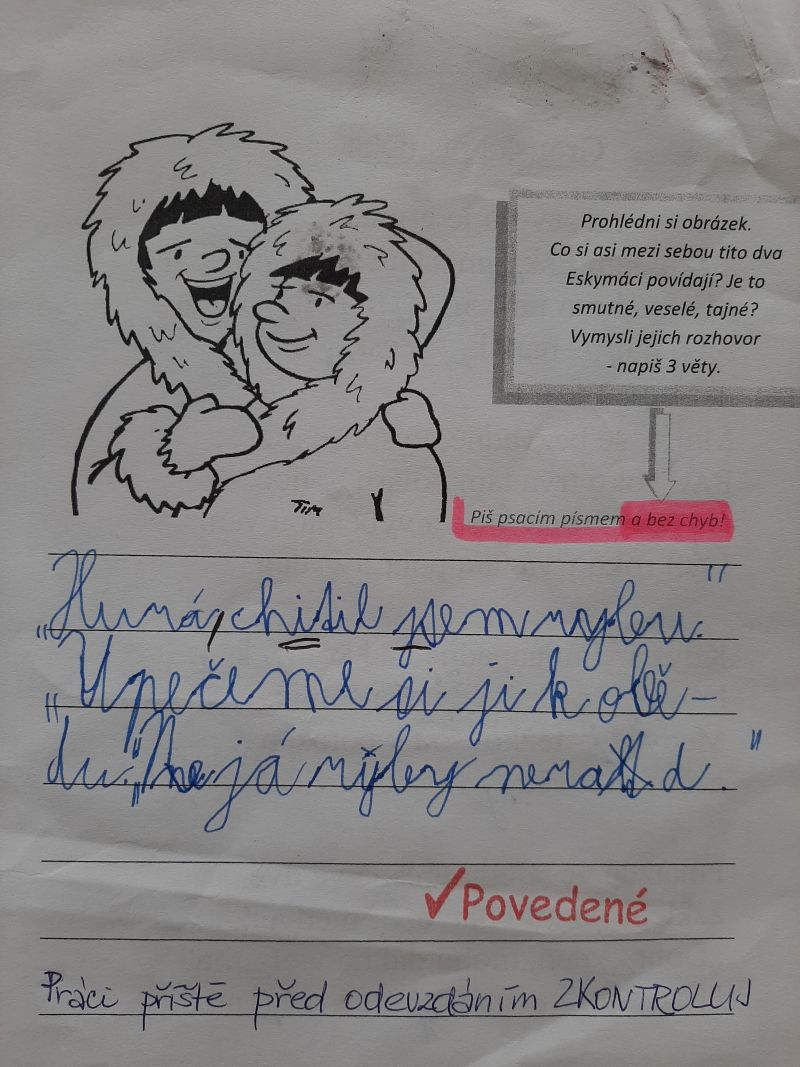 Prohlédni si obrázek.
Co si asi mezi sebou tito dva
Eskymáci povídají? Je to
smutné, veselé, tajné?
Vymysli jejich rozhovor
- napiš 3 věty.
TIM
Piš psacím písmem a bez chyb!
„Hurá, chitil jsem rybu."
„Upečeme si ji k obě-
du." „Ne já ryby nerad."
✓Povedené
Práci příště před odevzdáním ZKONTROLUJ